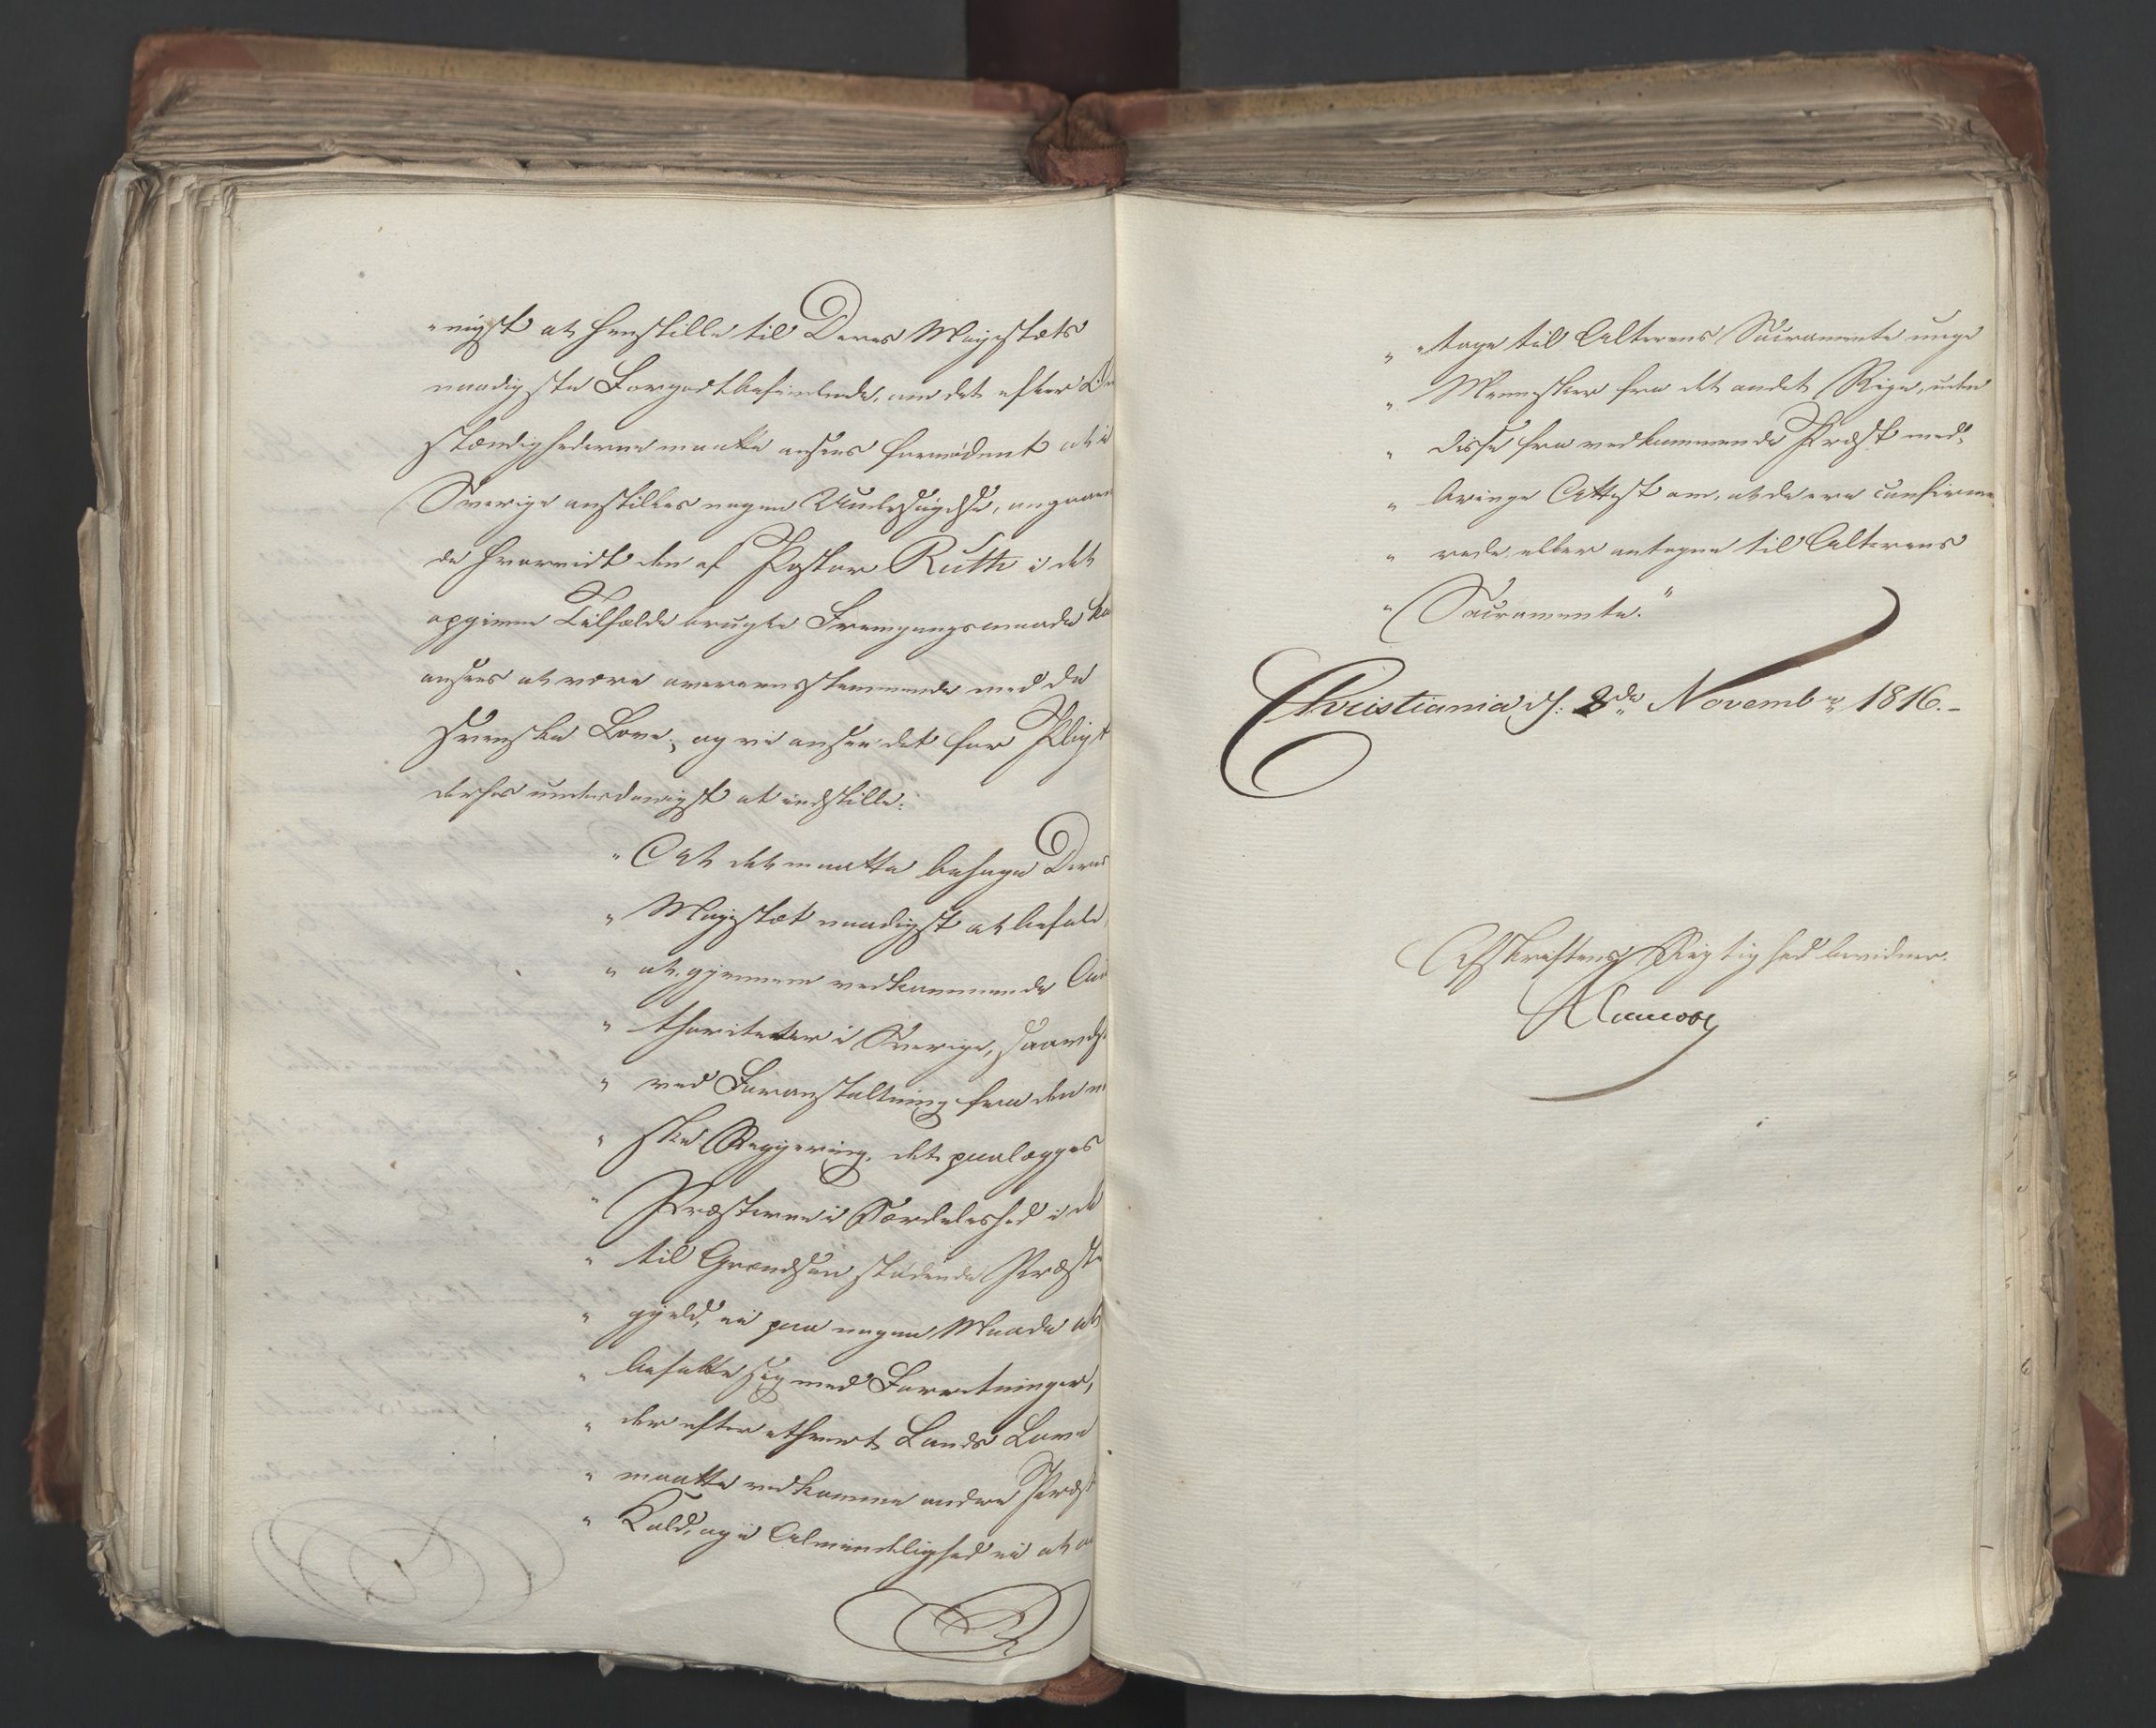 „nigst at henstille til Deres Majestæts
naadigste Forgodtbefindende, om det efter Om
stændighederne maatte ansees fornødent at i
Sverige anstilles nogen Undersøgelse, angaaen
de hvorvidt den af Pastor Ruth i det
opgivne Tilfælde brugte Fremgangsmaade kan
ansees at være overeensstemmende med de
svenske Love; og vi ansee det for Pligt
derhos underdanigst at indstille:
„At det maatte behage Deres
„Majestæt naadigst at befale,
„at gjennem vedkommende Au
„thoriteter i Sverige, saavelso
„ved Foranstaltning fra den no
„ske Regjering, det paalægges
„Præsterne i Særdeleshed i de
„til Grændsen stødende Præste
„gjeld, ei paa nogen Maade at
„befatte sig med Forretninger,
„der efter ethvert Lands Love
„maatte vedkomme andre Præste
„Kald, og i Almindelighed ei at an
„tage til Alterens Sacramente unge
„Mennesker fra det andet Rige, uden
„disse fra vedkommende Præst med-
„bringe Attest om, at de ere confirme
„rede eller antagne til Alterens
„Sacramente."
Christiania d: 8de Novembr 1816.-
Afskriftens Rigtighed bevidner.